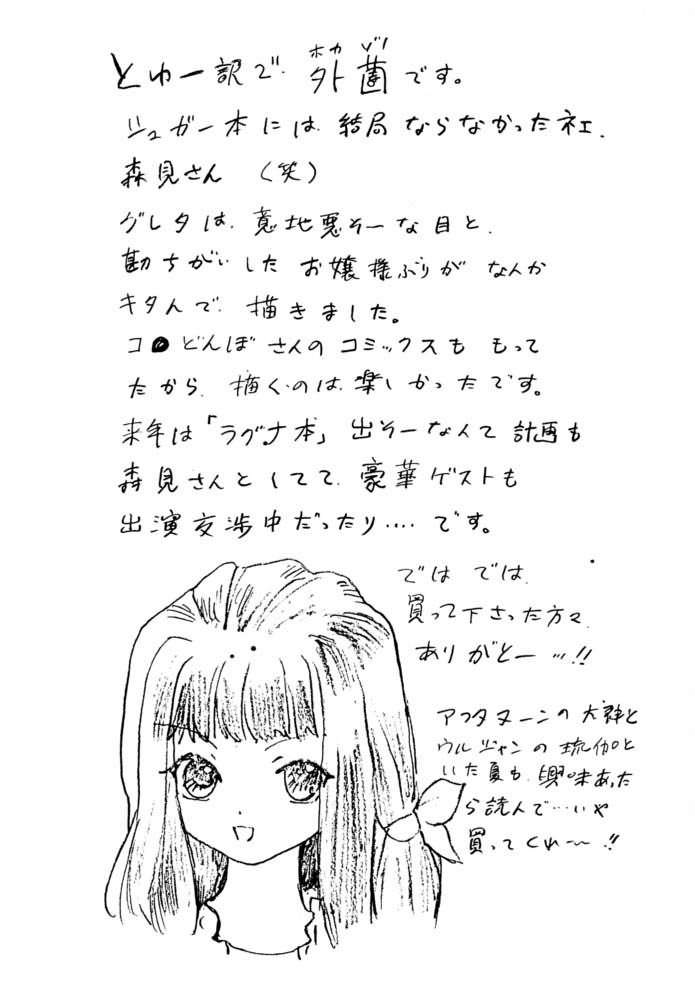 とゆー訳で、外薗です。
ホカ ゾノ
シュガー本には、結局ならなかったネェ、
森見さん（笑）
グレタは、意地悪そーな目と、
勘ちがいしたお嬢様ぶりがなんか
キタんで、描きました。
コ●どんぼさんのコミックスももって
たから、描くのは、楽しかったです。
来年は「ラグナ本」出そーなんて計画も
森見さんとしてて、豪華ゲストも
出演交渉中だったり‥‥です。
ではでは、
買って下さった方々、
ありがとー…!!
アフタヌーンの大神と
ウルジャンの琉伽と
いた夏も、興味あった
ら読んで…いや
買ってくれ〜!!